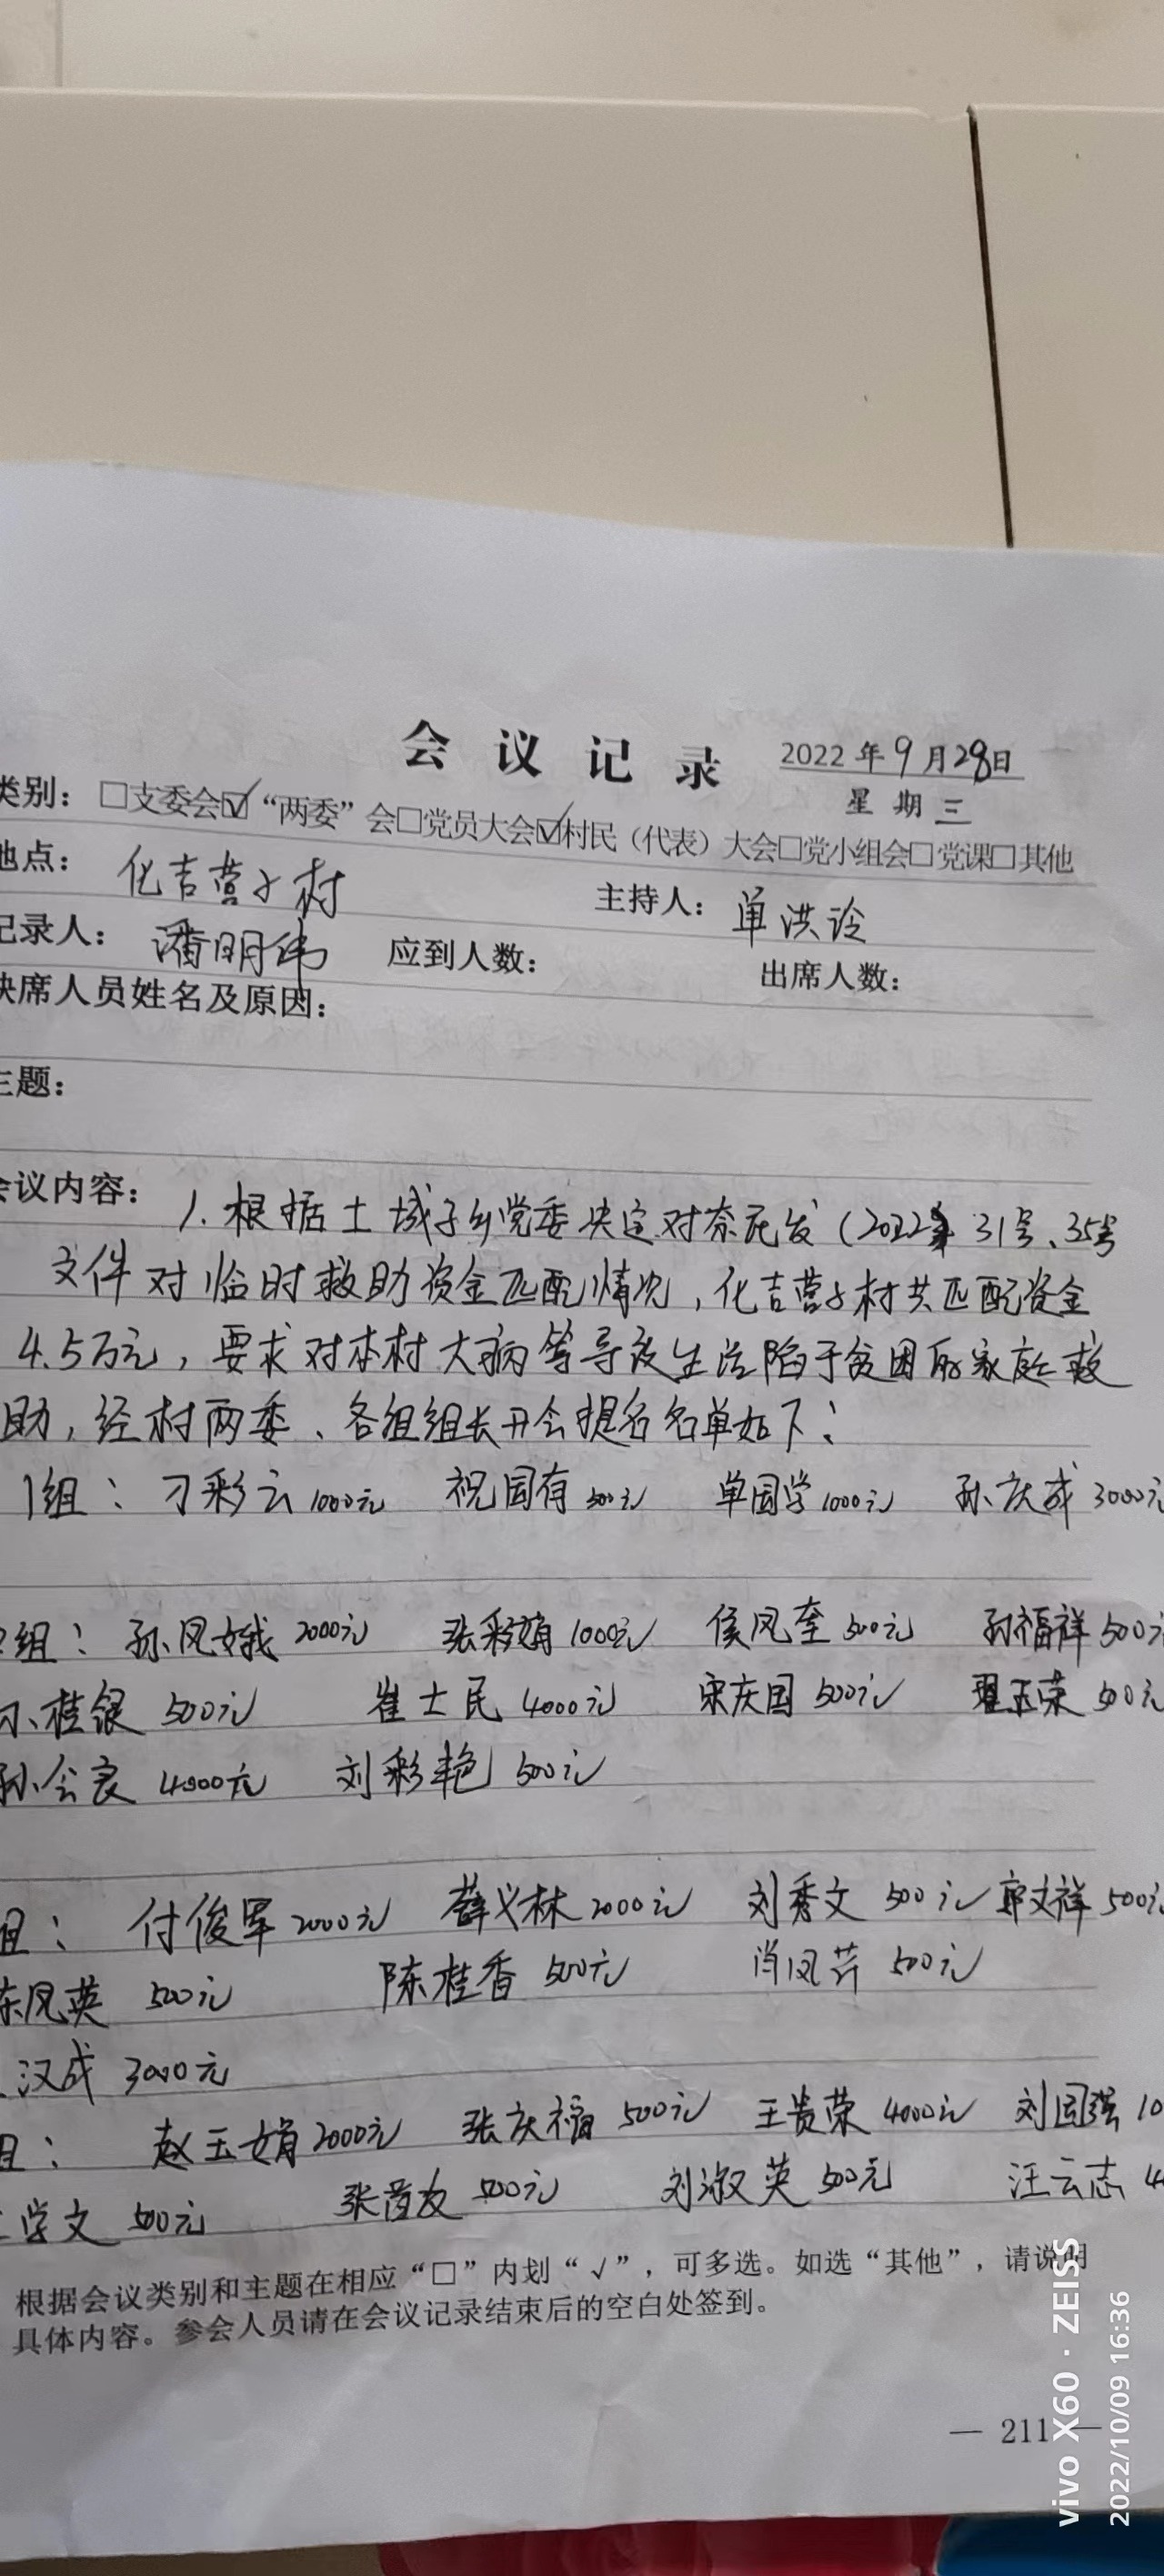 会议记录 2022年9月28日
星期三
类别：□支委会☑“两委”会□党员大会☑村民（代表）大会□党小组会□党课□其他
地点： 化吉营子村 主持人：单洪玲
记录人：潘明伟 应到人数： 出席人数：
缺席人员姓名及原因：
主题：
会议内容： 1.根据土城子乡党委决定对奈民发（2022 31号、35号
文件对临时救助资金匹配情况，化吉营子村共匹配资金
4.5万元，要求对本村大病等导致生活陷于贫困的家庭救
助，经村两委、各组组长开会提名名单如下：
1组：刁彩云1000元 祝国有500元 单国学1000元 孙庆成3000元
组：孙凤娥2000元 张彩娟1000元 侯凤奎500元 孙福祥500元
桂银500元 崔士民4000元 宋庆国500元 翟玉荣500元
孙会良4000元 刘彩艳500元
组：付俊军2000元 薛义林2000元 刘秀文500元 郭文祥500元
陈凤英500元 陈桂香500元 肖凤芹500元
汉成3000元
组：赵玉娟2000元 张庆福500元 王贵荣4000元 刘国强10
学文500元 张 友500元 刘淑英500元 汪云志4
根据会议类别和主题在相应“□”内划“√”，可多选。如选“其他”，请说明
具体内容。参会人员请在会议记录结束后的空白处签到。
— 211 —
vivo X60 · ZEISS
2022/10/09 16:36